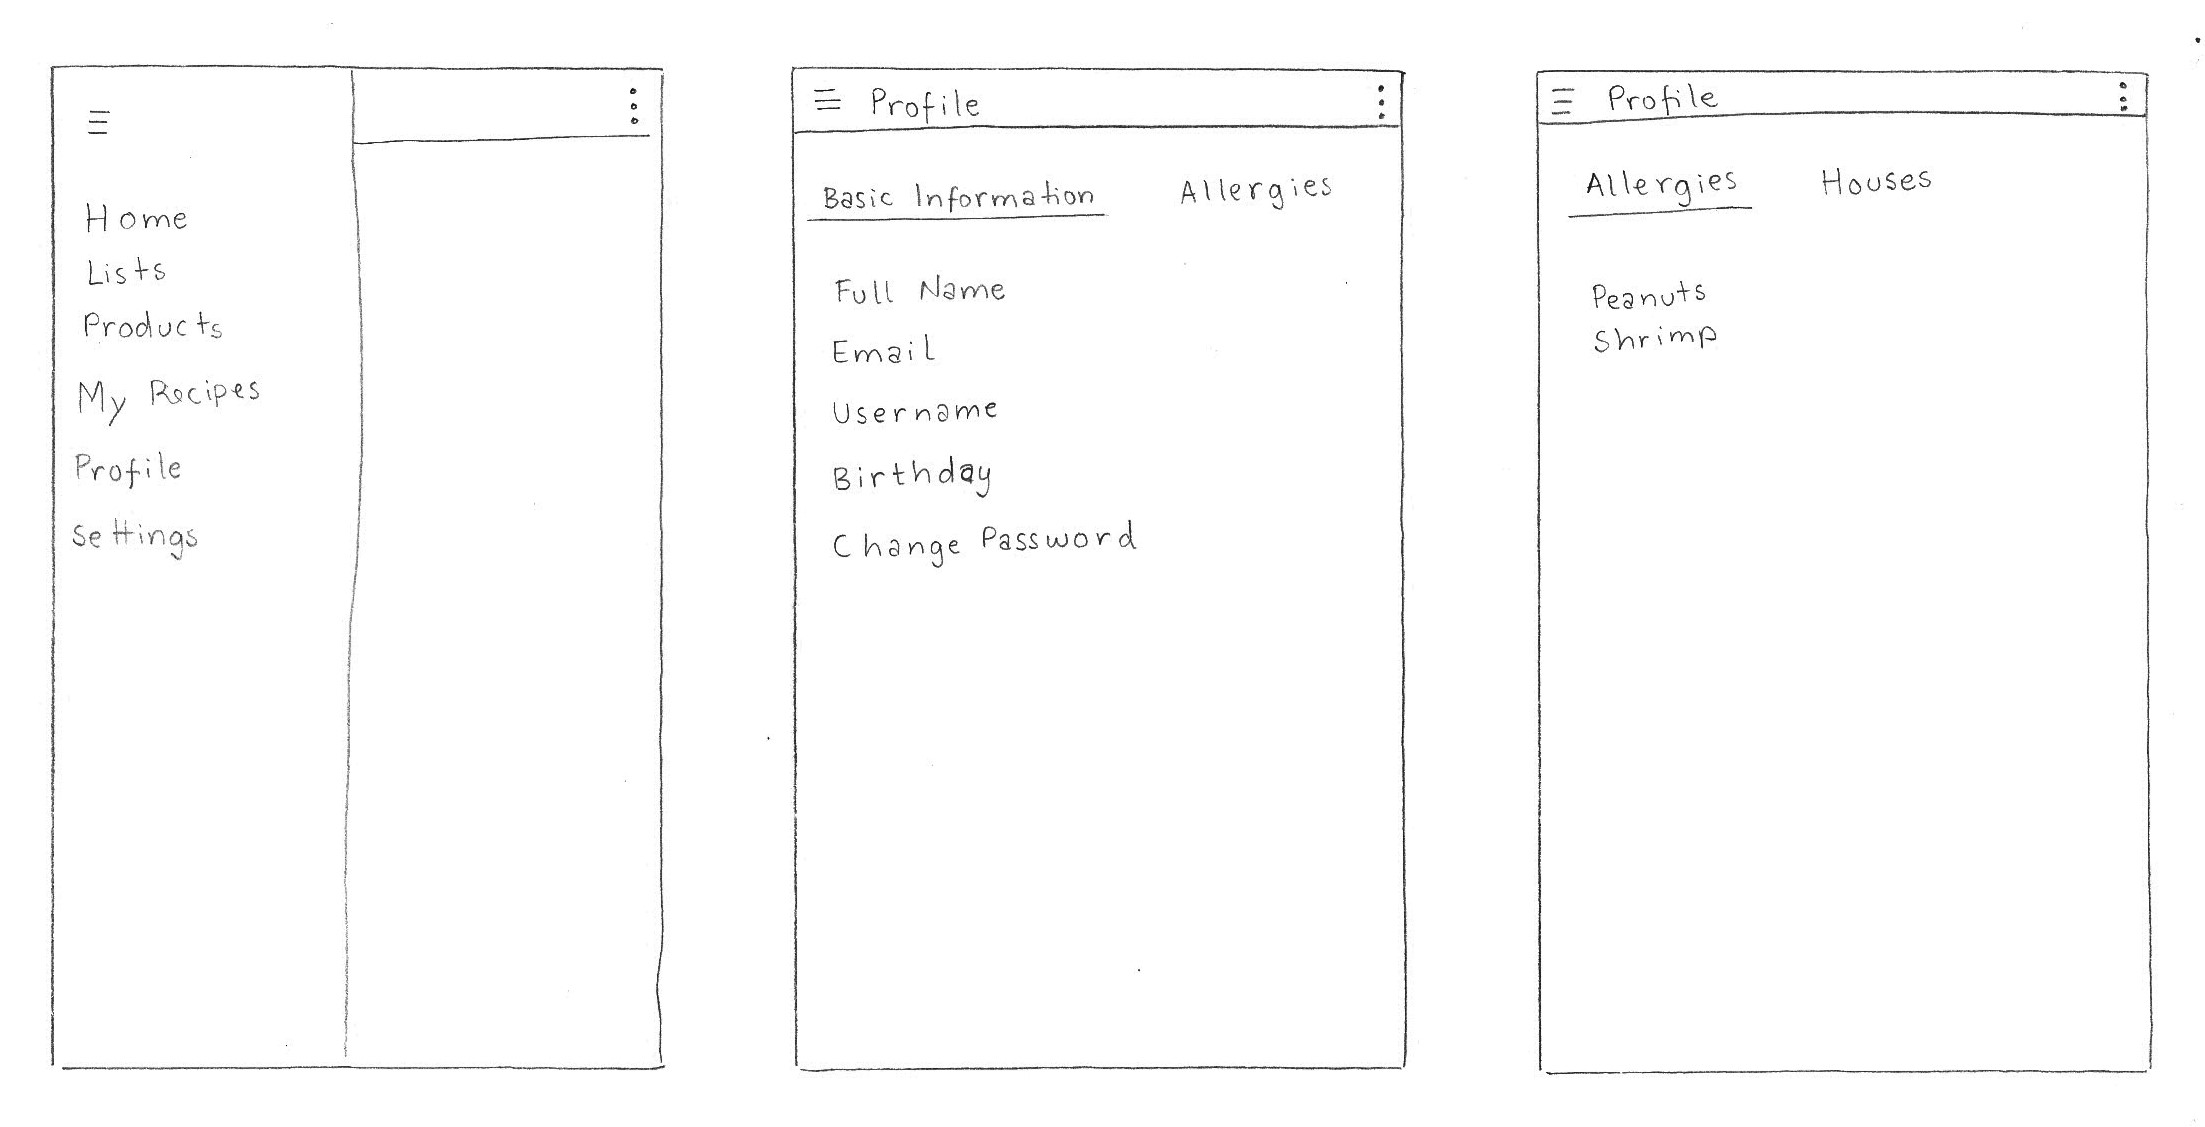 Home
Lists
Products
My Recipes
Profile
Settings
Profile
Basic Information Allergies
Full Name
Email
Username
Birthday
Change Password
Profile
Allergies Houses
Peanuts
Shrimp